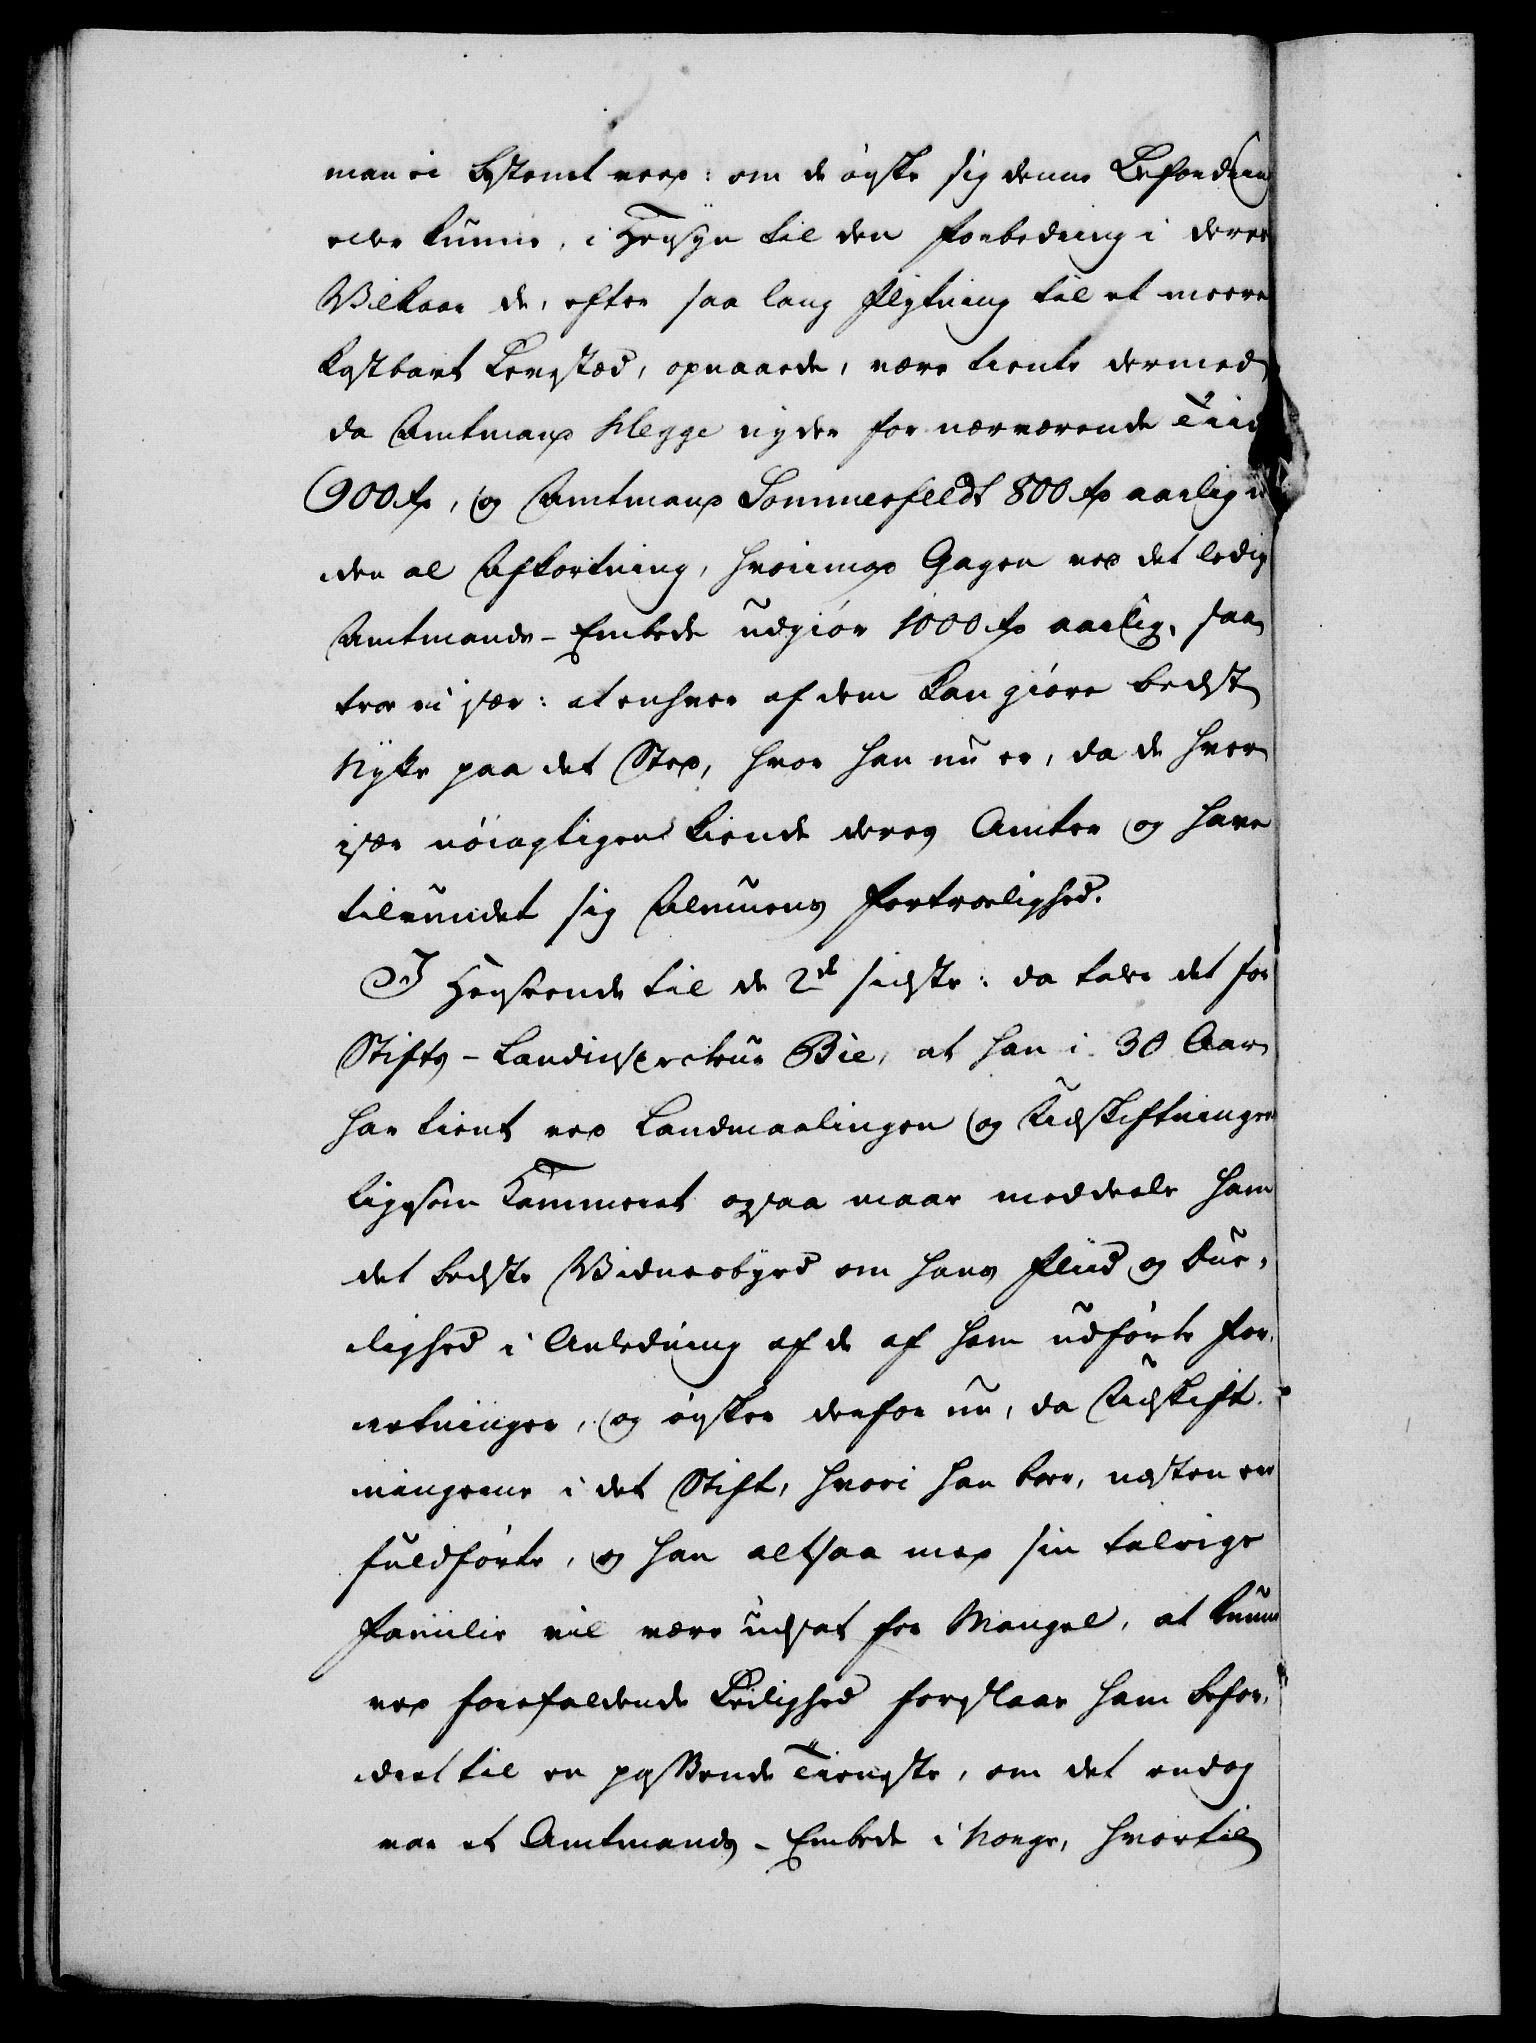 man ei bestemt veed: om de ønske sig denne Befordring
eller kunne, i Hensyn til den Forbedring i deres
Vilkaar de, efter saa lang Flytning til et meere
kostbart Levested, opnaaede, være tiente dermed
da Amtmand Wegge nyder for nærværende Tiid
900 rd, og Amtmand Sommerfeldt 800 rd aarlig u
den al Afkortning, hvorimod Gagen ved det ledig
Amtmands-Embede udgiør 1000 rd aarlig, saa
troe vi især: at enhver af dem kan giøre bedst
Nytte paa det Sted, hvor han nu er, da de hver
især nøiagtigen kiende deres Amter og have
tilvundet sig Almuens Fortroelighed.
I Henseende til de 2de sidste: da taler det for
Stifts-Landinspecteur Bie, at han i 30 Aar
har tient ved Landmaalingen og Udskiftningen
ligesom Kammeret ogsaa maae meddeele ham
det bedste Vidnesbyrd om hans Fliid og Due-
lighed i Anledning af de af ham udførte For-
retninger, og ønsker derfor nu, da Udskift-
ningerne i det Stift, hvori han boer, næsten er
fuldførte, og han altsaa med sin talrige
Familie vil være udsat for Mangel, at kunne
ved forefaldende Leilighed foreslaae ham befor-
dret til en passende Tieneste, om det endog
var et Amtmands-Embede i Norge, hvortil